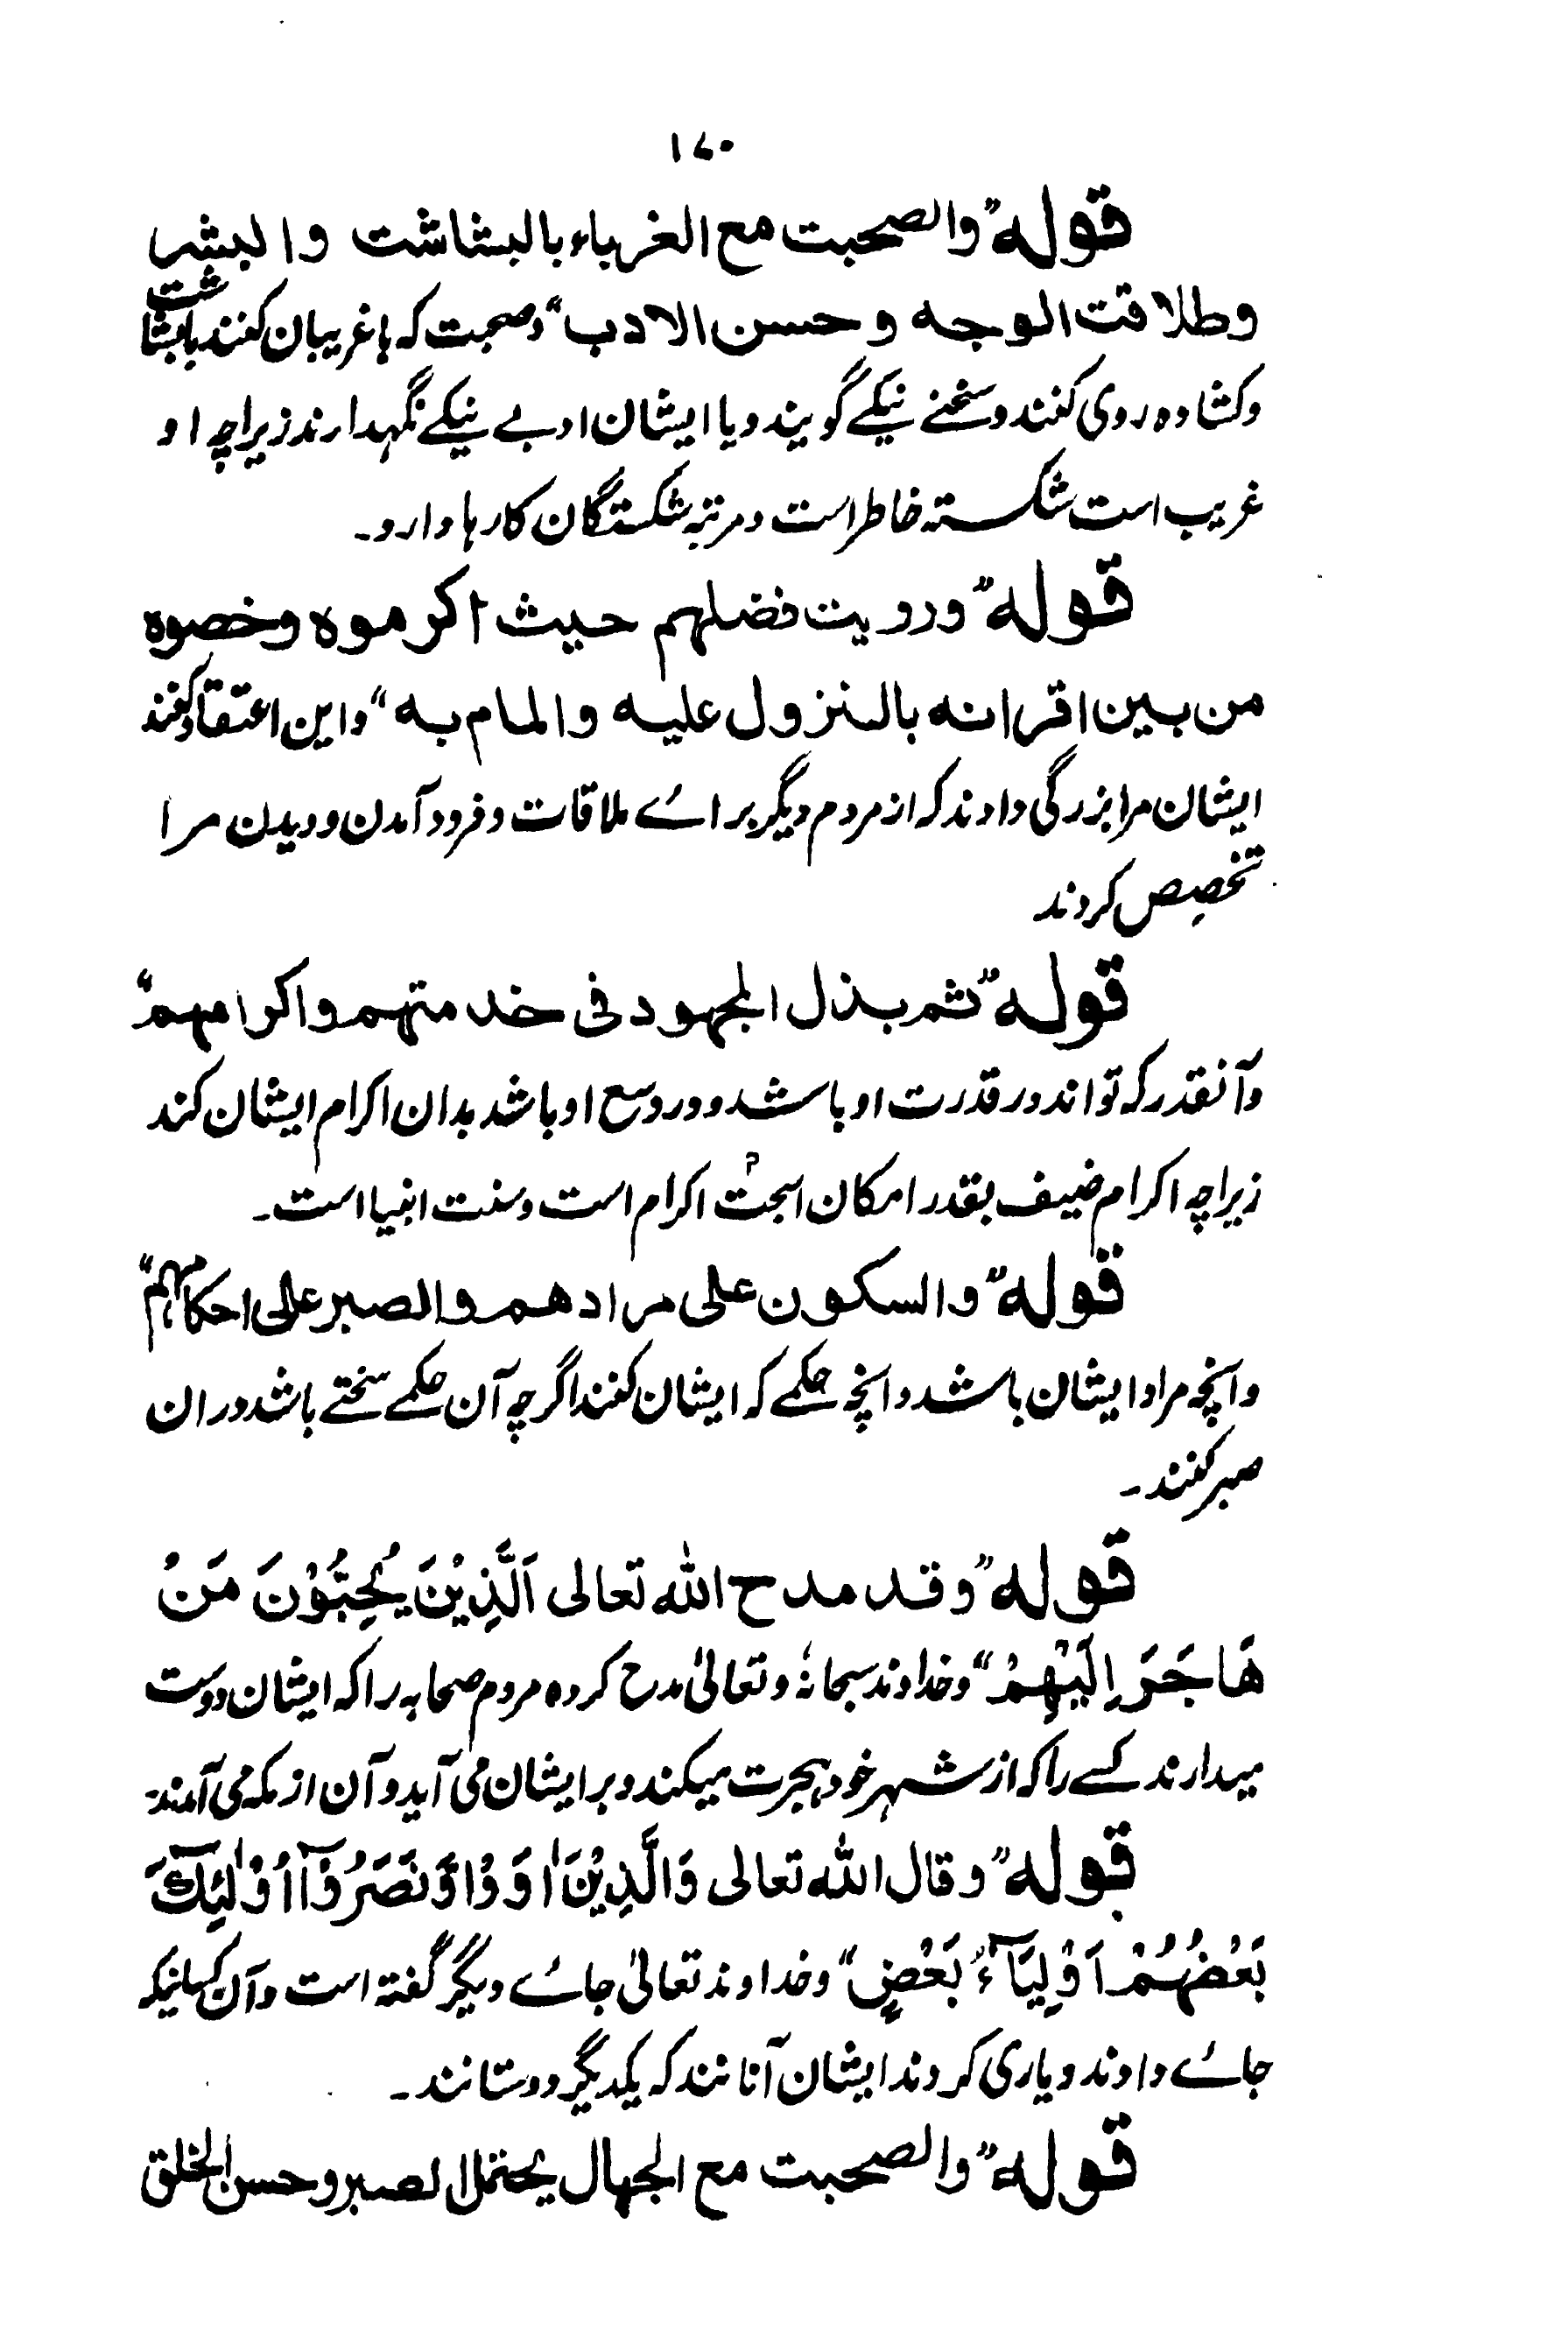 ۱۷۰
قوله "والصحبت مع الغرباء بالبشاشت والبشر
وطلاقت الوجه وحسن الادب" وصحبت که با غریبان کنند بابشاشت
وکشاده روی کنند و سخنے نیکے گویند و با ایشان ادبے نیکے نگهدارند زیراچه او
غریب است شکسته خاطر است و مرتبه شکستگان کارها دارد۔
قوله "ورویت فضلهم حیث اکرموه وخصوه
من بین اقرانه بالنزول علیه والمام به" و این اعتقاد کنند
ایشان مرا بزرگی دادند که از مردم دیگر برائے ملاقات و فرود آمدن و دیدن مرا
تخصیص کردند
قوله "ثم بذل المجهود فی خدمتهم واکرامهم"
و آنقدر که تواند در قدرت او باشد و در وسع او باشد بدان اکرام ایشان کند
زیراچه اکرام ضیف بقدر امکان اکرام است و سنت انبیا است۔
قوله "والسکون علی مرادهم والصبر علی احکامهم"
و آنچه مراد ایشان باشد و آنچه حکمے که ایشان کنند اگرچه آن حکمے سختے باشد در ان
صبر کنند۔
قوله "وقد مدح الله تعالی اَلَّذِیْنَ یُحِبُّوْنَ مَنْ
هَاجَرَ اِلَیْهِمْ" و خداوند سبحانهٗ و تعالیٰ مدح کرده مردم صحابه را که ایشان دوست
میدارند کسے را که از شهر خود هجرت میکند و بر ایشان می آید و آن از مکه می آمدند۔
قوله "وقال الله تعالی وَالَّذِیْنَ اٰوَوْا وَّنَصَرُوْآ اُوْلٰٓئِكَ
بَعْضُهُمْ اَوْلِیَآءُ بَعْضٍ" و خداوند تعالیٰ جائے دیگر گفته است و آن کسانیکه
جائے دادند و یاری کردند ایشان آنانند که یکدیگر دوستانند۔
قوله "والصحبت مع الجهال یحتمل الصبر وحسن الخلق